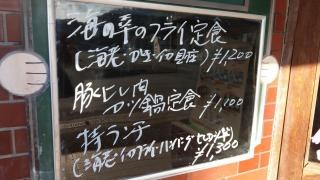 海の幸のフライ定食
(海老・カキ・イカ・貝柱) ¥1,200
豚ヒレ肉
カツ鍋定食 ¥1,100
特ランチ
(海老・イカフライ・ハンバーグ・ヒレカツ
¥1,300